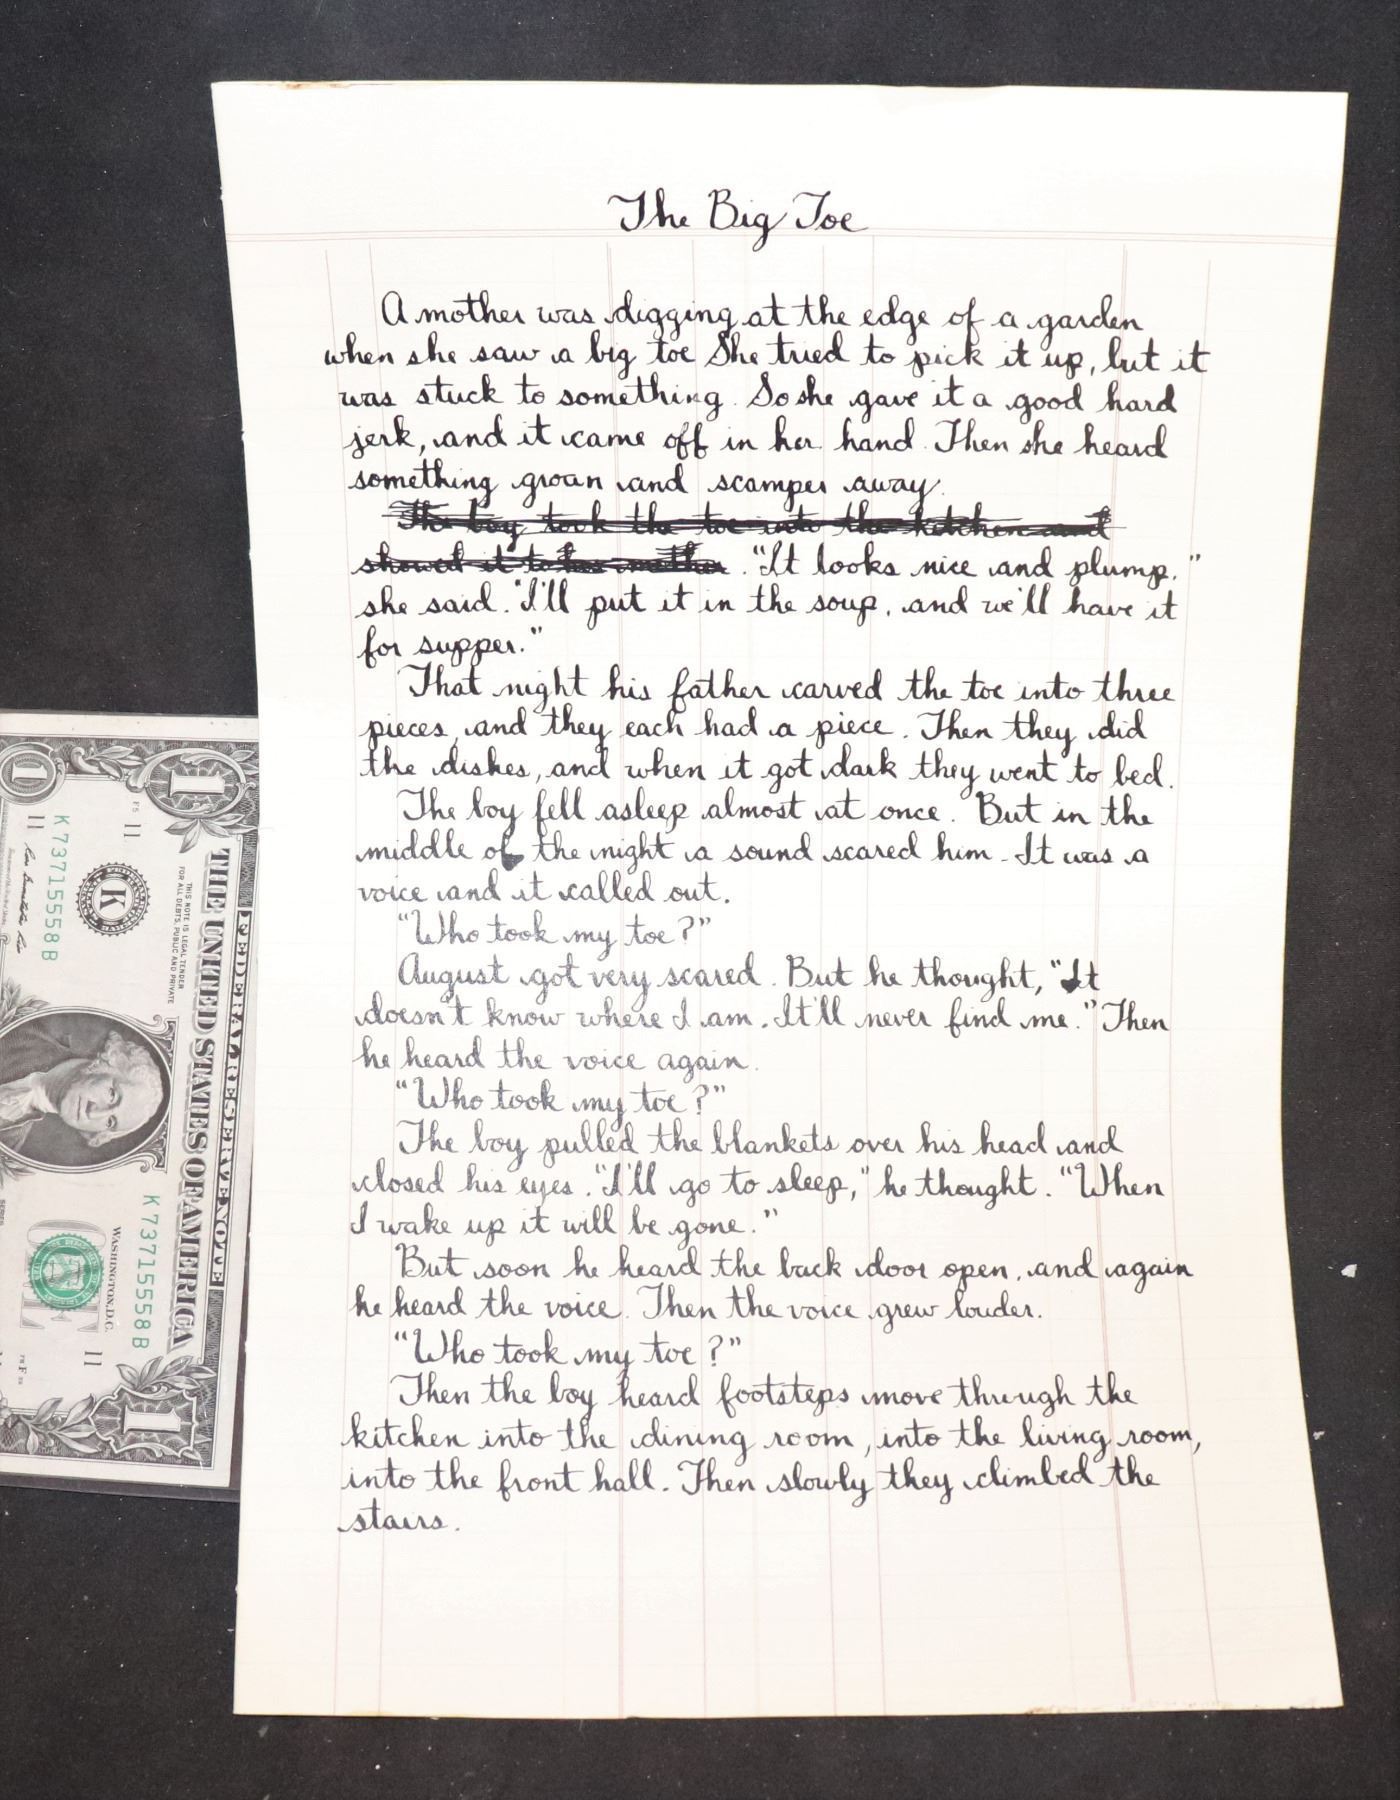 The Big Toe
A mother was digging at the edge of a garden
when she saw a big toe She tried to pick it up, but it
was stuck to something. So she gave it a good hard
jerk, and it came off in her hand. Then she heard
something groan and scamper away.
The boy took the toe into the kitchen and
showed it to his mother. "It looks nice and plump,"
she said. "I'll put it in the soup, and we'll have it
for supper."
That night his father carved the toe into three
pieces, and they each had a piece. Then they did
the dishes, and when it got dark they went to bed.
The boy fell asleep almost at once. But in the
middle of the night a sound scared him. It was a
voice and it called out.
"Who took my toe?"
August got very scared. But he thought, "It
doesn't know where I am. It'll never find me." Then
he heard the voice again.
"Who took my toe?"
The boy pulled the blankets over his head and
closed his eyes. "I'll go to sleep," he thought. "When
I wake up it will be gone."
But soon he heard the back door open, and again
he heard the voice. Then the voice grew louder.
"Who took my toe?"
Then the boy heard footsteps move through the
kitchen into the dining room, into the living room,
into the front hall. Then slowly they climbed the
stairs.
FEDERAL RESERVE NOTE
THE UNITED STATES OF AMERICA
THIS NOTE IS LEGAL TENDER
FOR ALL DEBTS, PUBLIC AND PRIVATE
K 73715558 B
11
K
1
1
WASHINGTON, D.C.
K 73715558 B
11
1